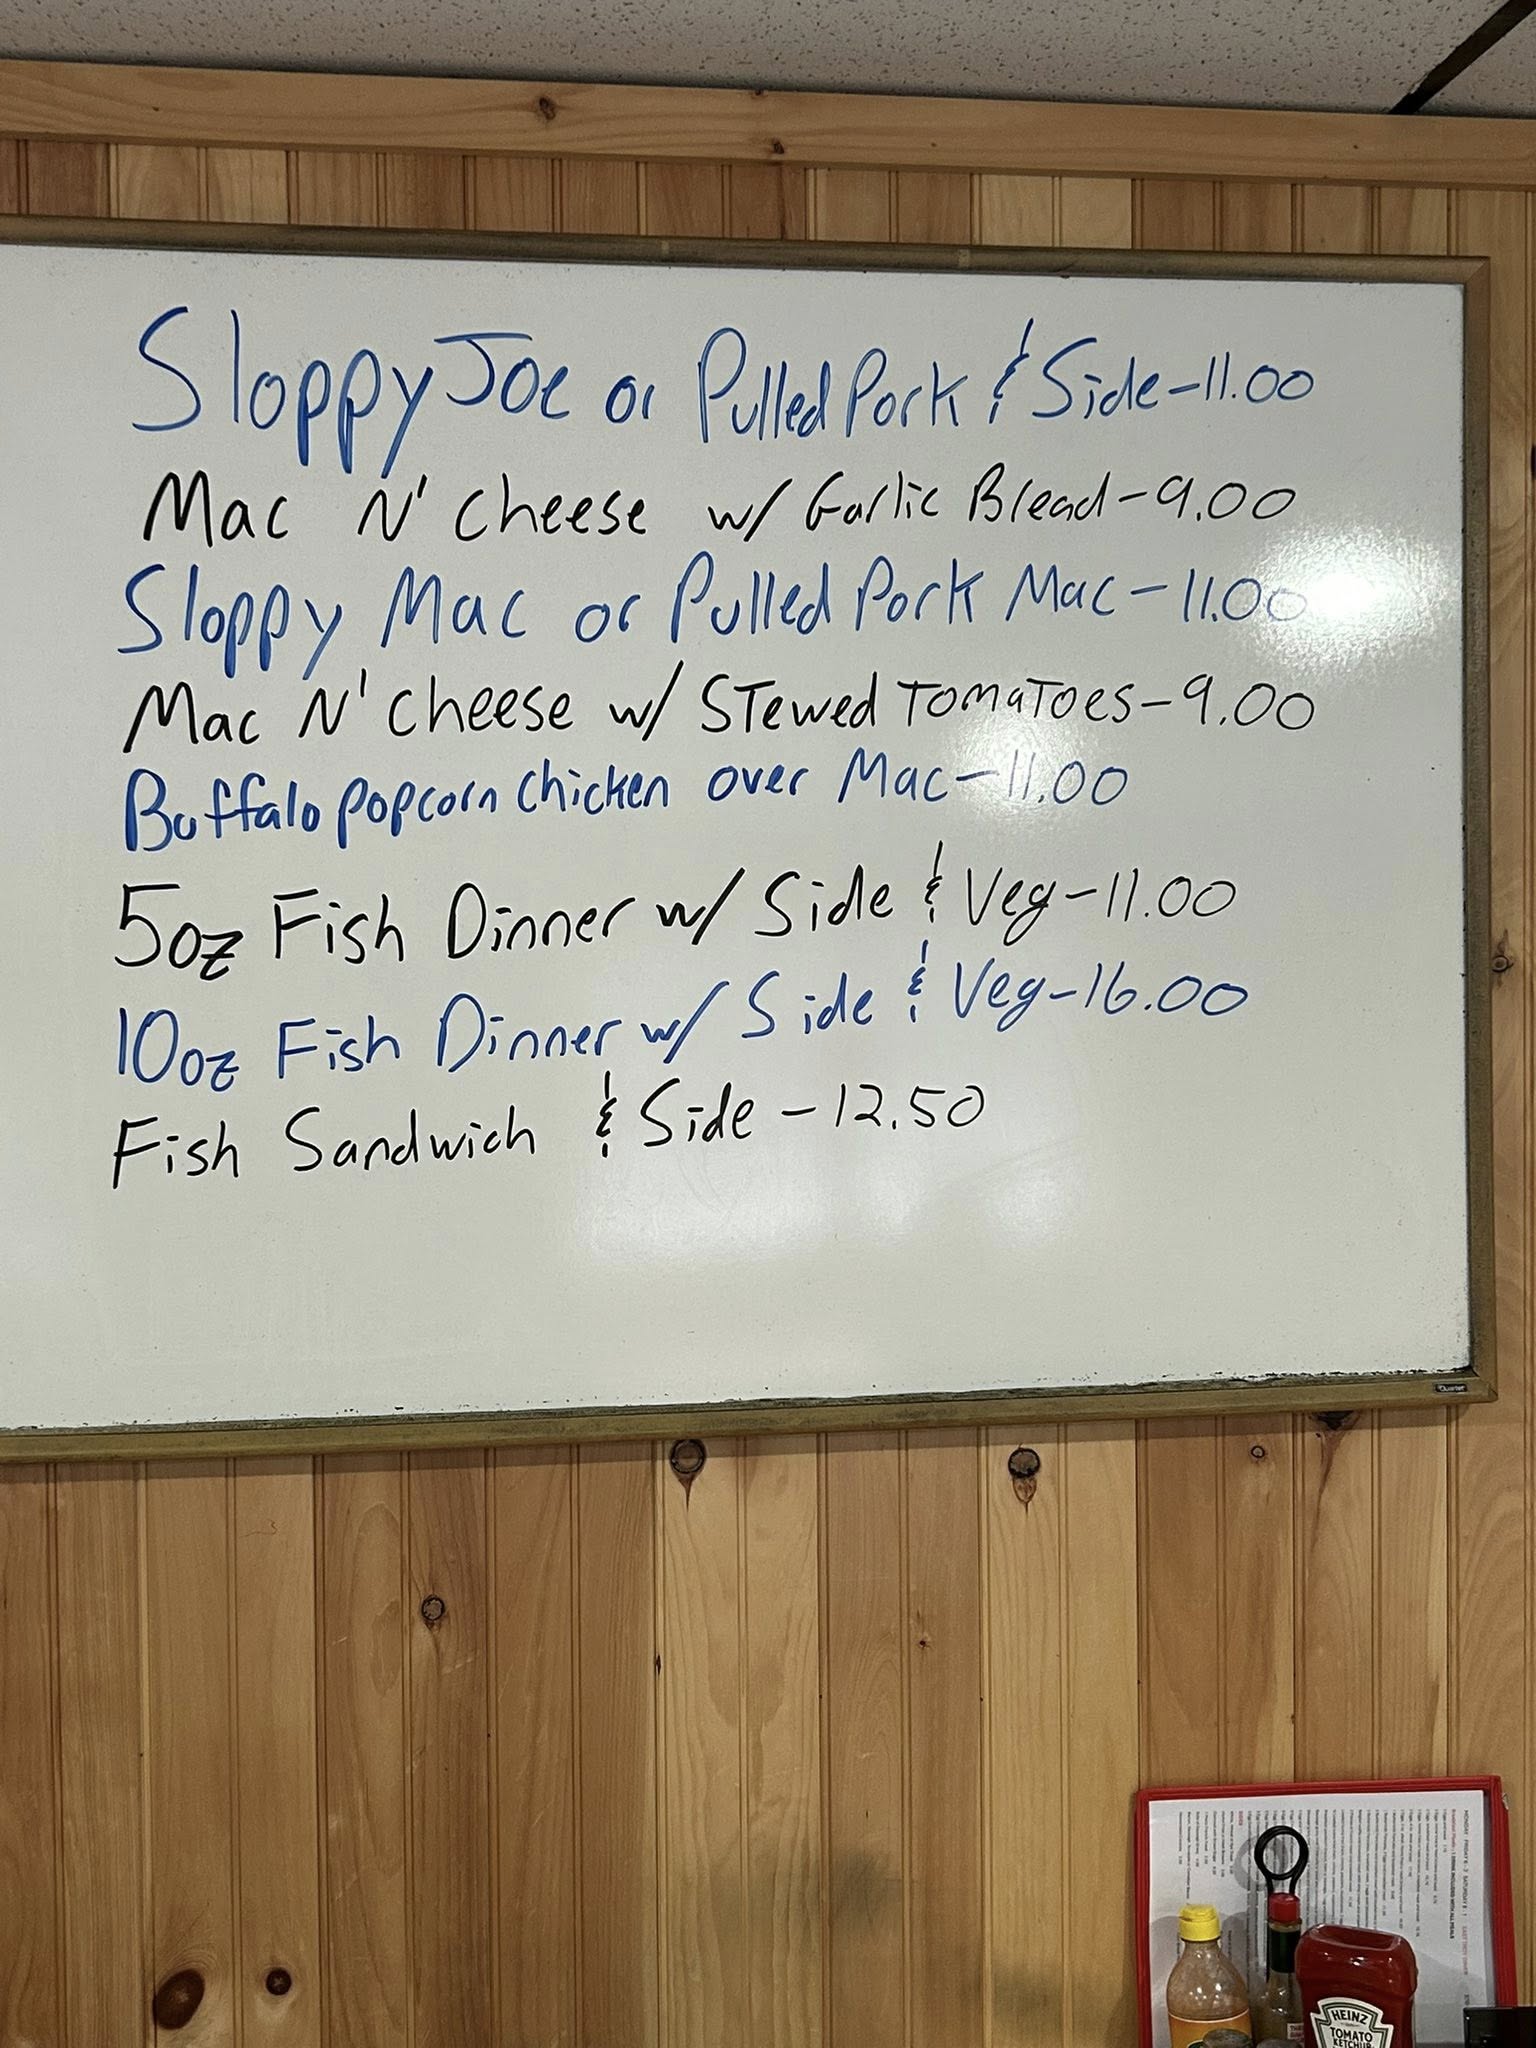 Sloppy Joe or Pulled Pork & Side-11.00
Mac N' cheese w/ Garlic Bread-9.00
Sloppy Mac or Pulled Pork Mac-11.00
Mac N' cheese w/ STewed TomaToes-9.00
Buffalo popcorn chicken over Mac-11.00
5oz Fish Dinner w/ Side & Veg-11.00
10oz Fish Dinner w/ Side & Veg-16.00
Fish Sandwich & Side-12.50
Quartet
HEINZ
TOMATO
KETCHUP